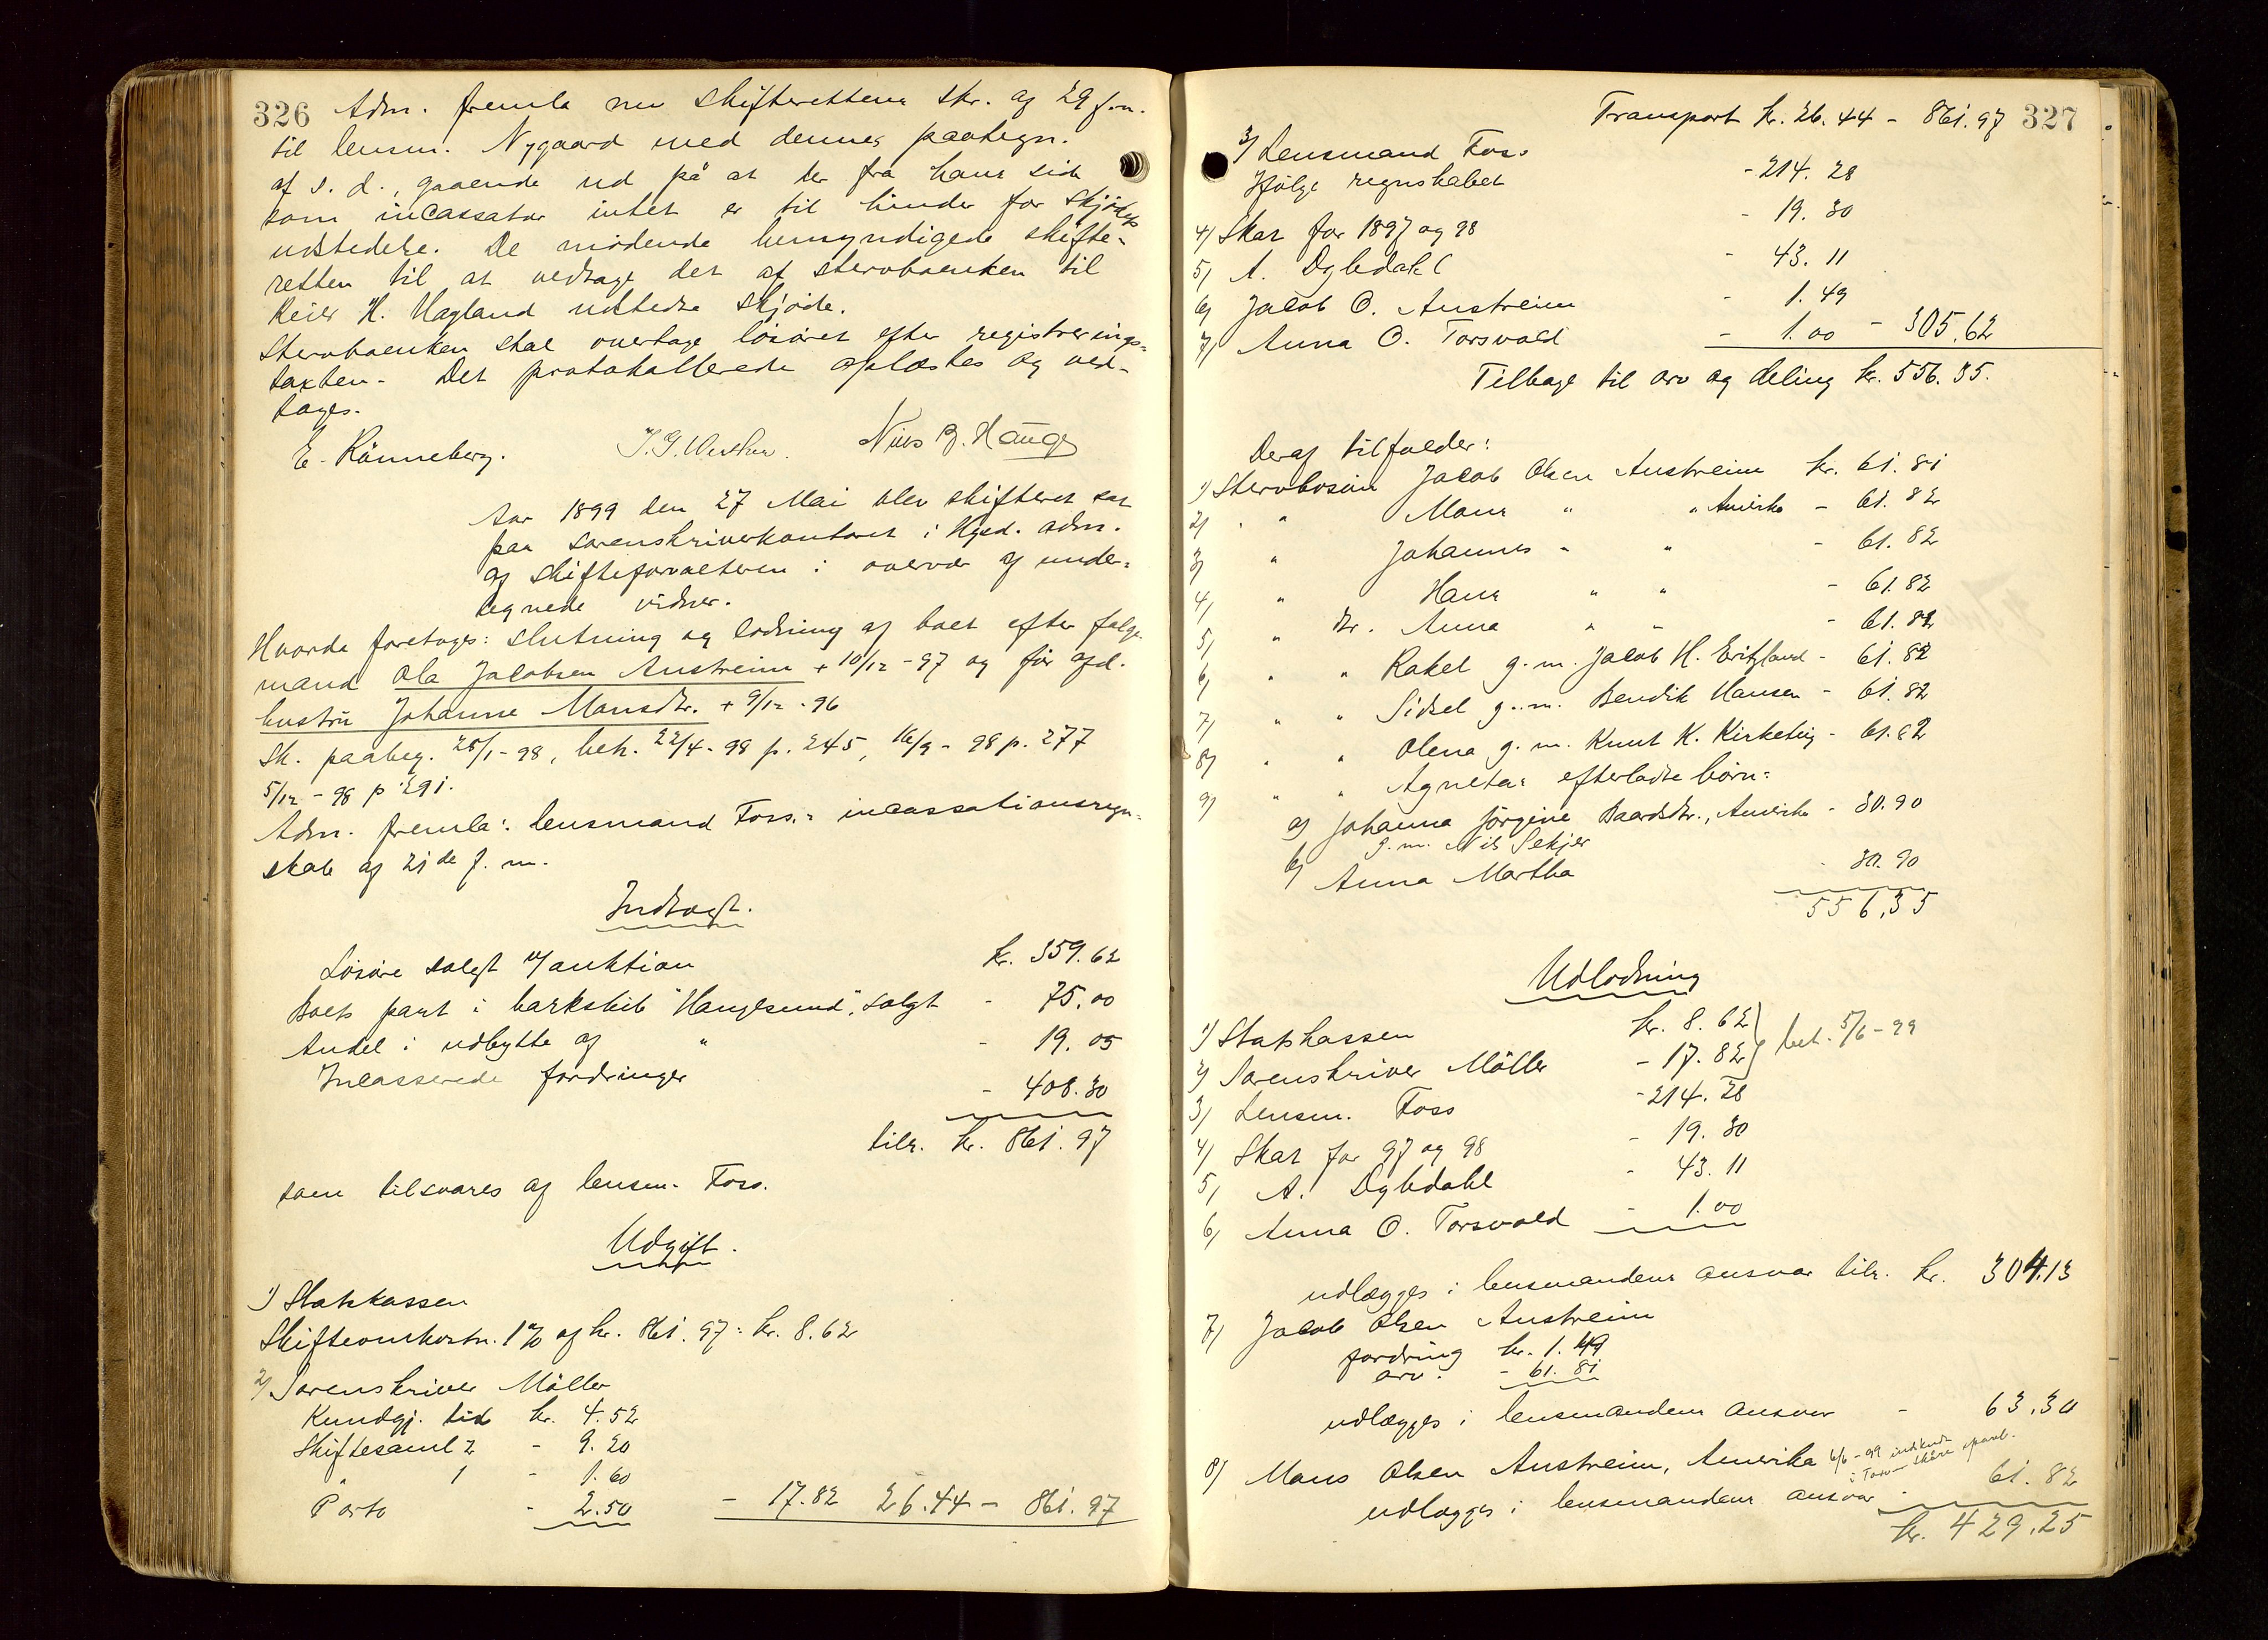 326 Adm. fremla nu skifterettens skr. af 29 f.m.
til lensm. Nygaard med dennes paategn.
af s. d., gaaende ud på at der fra hans side
som incassator intet er til hinder for skjödets
udstedelse. De mödende bemyndigede skifte-
retten til at vedtage det af stervboenken til
Reier H. Hagland udstedte skjöde.
Stervboenken skal overtage lösöret efter registrerings-
taxten. Det protokollerede oplæstes og ved-
toges.
E. Rönneberg. Nils B. Hauge
Aar 1899 den 27 Mai blev skifteret sat
paa sorenskriverkontoret i Hgsd. adm.
af skifteforvalteren i overvær af under-
tegnede vidner.
Hvorda foretoges: slutning og lodning af boet efter folge-
mand Ola Jacobsen Austreim + 10/12 - 97 og för afd.
hustru Johanne Monsdtr. + 9/12 - 96
Sk. paabeg. 25/1 - 98, beh. 22/4 - 98 p. 245, 16/9 - 98 p. 277
5/12 - 98 p 291.
Adm. fremla: lensmand Foss.s incassationsregn-
skab af 21de f. m.
Indtægt.
Lösöre solgt v/ auktion kr. 359.62
Boets part i barkskib "Haugesund", solgt - 75.00
Andel i udbytte af " - 19.05
Incasserede fordringer - 408.30
tils. kr. 861.97
som tilsvares af lensm. Foss.
Udgift.
1) Statskassen
Skifteomkostn. 1 % af kr. 861.97 = kr. 8.62
2) Sorenskriver Möller
Kundgj. tid kr. 4.52
Skiftesaml 2 - 9.20
" 1 - 1.60
Porto - 2.50 - 17.82 26.44 - 861.97
Transport kr. 26.44 - 861.97 327
3) Lensmand Foss
Ifölge regnskabet - 214.28
4) Skat for 1897 og 98 - 19.30
5) A. Dybdahl - 43.11
6) Jacob O. Austreim - 1.49
7) Anna O. Torsvold - 1.00 - 305.62
Tilbage til arv og deling kr. 556.35.
Deraf tilfalder:
1) Stervbosön Jacob Olsen Austreim kr. 61.81
2) " " Mons " " Amerika - 61.82
3) " Johannes " " - 61.82
4) " Hans " " - 61.82
5) " Dtr. Anna " " - 61.82
6) " " Rakel g. m. Jacob H. Eritzland - 61.82
7) " " Sidsel g. m. Bendik Hansen - 61.82
8) " " Olena g. m. Knut K. Kirketeig - 61.82
9) " " Agneta's efterladte börn:
a) Johanna Jörgine Baardsdtr., Amerika - 30.90
g. m. Nils Sekjer
b) Anna Martha - 30.90
556,35
Udlodning
1) Statskassen kr. 8.62
2) Sorenskriver Möller - 17.82 } bet. 5/6 - 99
3) Lensm. Foss - 214.28
4) Skat for 97 og 98 - 19.30
5) A. Dybdahl - 43.11
6) Anna O. Torsvold - 1.00
udlægges i lensmandens ansvar tils. kr. 304.13
7) Jacob Olsen Austreim
fordring kr. 1.49
arv. - 61.81
udlægges i lensmandens ansvar - 63.30
8) Mons Olsen Austreim, Amerika 6/6 - 99
udlægges i lensmandens ansvar - 61.82
kr. 429.25